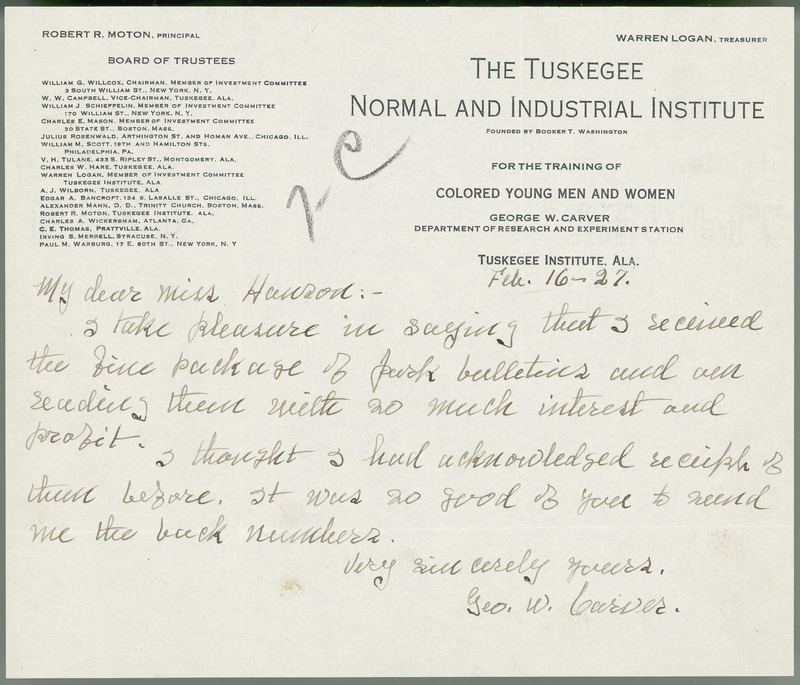 ROBERT R. MOTON, PRINCIPAL
WARREN LOGAN, TREASURER
BOARD OF TRUSTEES
WILLIAM G. WILLCOX, CHAIRMAN, MEMBER OF INVESTMENT COMMITTEE
3 SOUTH WILLIAM ST., NEW YORK, N. Y.
W. W. CAMPBELL, VICE-CHAIRMAN, TUSKEGEE, ALA.
WILLIAM J. SCHIEFFELIN, MEMBER OF INVESTMENT COMMITTEE
170 WILLIAM ST., NEW YORK, N. Y.
CHARLES E. MASON, MEMBER OF INVESTMENT COMMITTEE
30 STATE ST., BOSTON, MASS.
JULIUS ROSENWALD, ARTHINGTON ST. AND HOMAN AVE., CHICAGO, ILL.
WILLIAM M. SCOTT, 19TH AND HAMILTON STS.
PHILADELPHIA, PA.
V. H. TULANE, 433 S. RIPLEY ST., MONTGOMERY, ALA.
CHARLES W. HARE, TUSKEGEE, ALA.
WARREN LOGAN, MEMBER OF INVESTMENT COMMITTEE
TUSKEGEE INSTITUTE, ALA.
A. J. WILBORN, TUSKEGEE, ALA
EDGAR A. BANCROFT, 134 S. LASALLE ST., CHICAGO, ILL.
ALEXANDER MANN, D. D., TRINITY CHURCH, BOSTON, MASS.
ROBERT R. MOTON, TUSKEGEE INSTITUTE, ALA.
CHARLES A. WICKERSHAM, ATLANTA, GA.
C. E. THOMAS, PRATTVILLE, ALA.
IRVING S. MERRELL, SYRACUSE, N. Y.
PAUL M. WARBURG, 17 E. 80TH ST., NEW YORK, N. Y
THE TUSKEGEE
NORMAL AND INDUSTRIAL INSTITUTE
FOUNDED BY BOOKER T. WASHINGTON
FOR THE TRAINING OF
COLORED YOUNG MEN AND WOMEN
GEORGE W. CARVER
DEPARTMENT OF RESEARCH AND EXPERIMENT STATION
TUSKEGEE INSTITUTE, ALA.
Feb. 16-27.
My dear miss Hanson:-
I take pleasure in saying that I received
the fine package of park bulletins and am
reading them with so much interest and
profit.
I thought I had acknowledged receipt of
them before. It was so good of you to send
me the back numbers.
Very sincerely yours.
Geo. W. Carver.